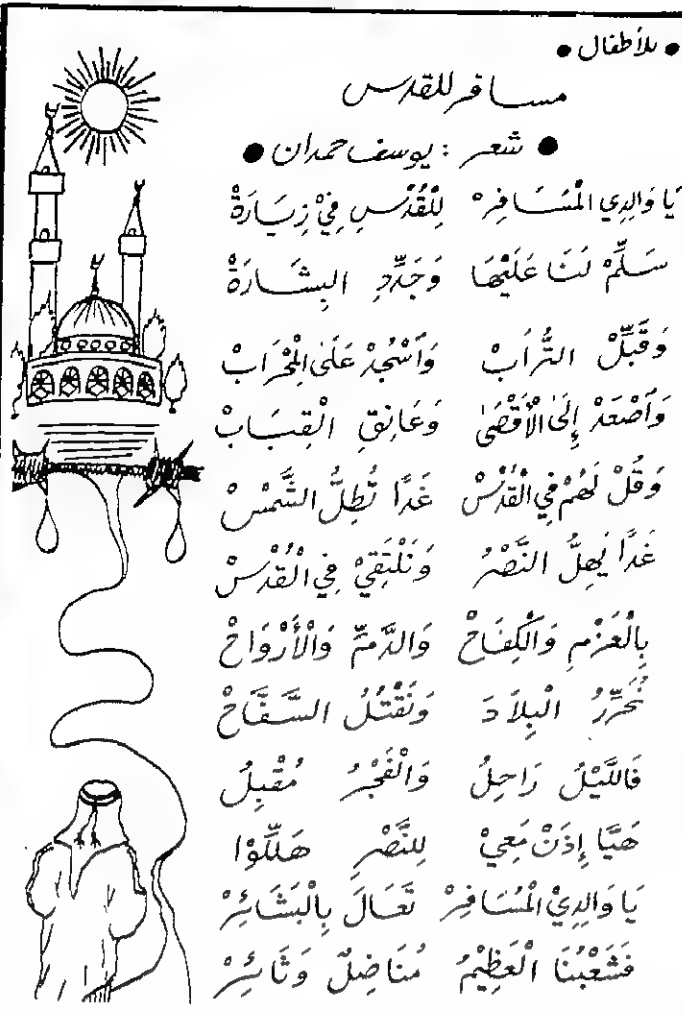 • للأطفال •
مسافر للقدس
• شعر : يوسف حمدان •
يَا وَالِدِي الْمُسَافِرْ لِلْقُدْسِ فِيْ زِيَارَةْ
سَلِّمْ لَنَا عَلَيْهَا وَجَدِّدِ البِشَارَةْ
وَقَبِّلْ التُّرَابْ وَٱسْجُدْ عَلَى الِمْحْرَابْ
وَٱصْعَدْ إِلَى الْأَقْصَىٰ وَعَانِقِ الْقِبَابْ
وَقُلْ لَهُمْ فِي الْقُدْسْ غَدًا تُطِلُّ الشَّمْسْ
غَدًا يَهِلُّ النَّصْرُ وَنَلْتَقِيْ فِي الْقُدْسْ
بِالْعَزْمِ وَالْكِفَاحْ وَالدَّمِّ وَالْأَرْوَاحْ
نُحَرِّرُ الْبِلَادَ وَنَقْتُلُ السَّفَّاحْ
فَاللَّيْلُ رَاحِلُ وَالْفَجْرُ مُقْبِلُ
هَيَّا إِذَنْ مَعِيْ لِلنَّصْرِ هَلِّلُوْا
يَا وَالِدِيْ الْمُسَافِرْ تَعَالَ بِالْبَشَائِرْ
فَشَعْبُنَا الْعَظِيْمُ مُنَاضِلٌ وَثَائِرْ